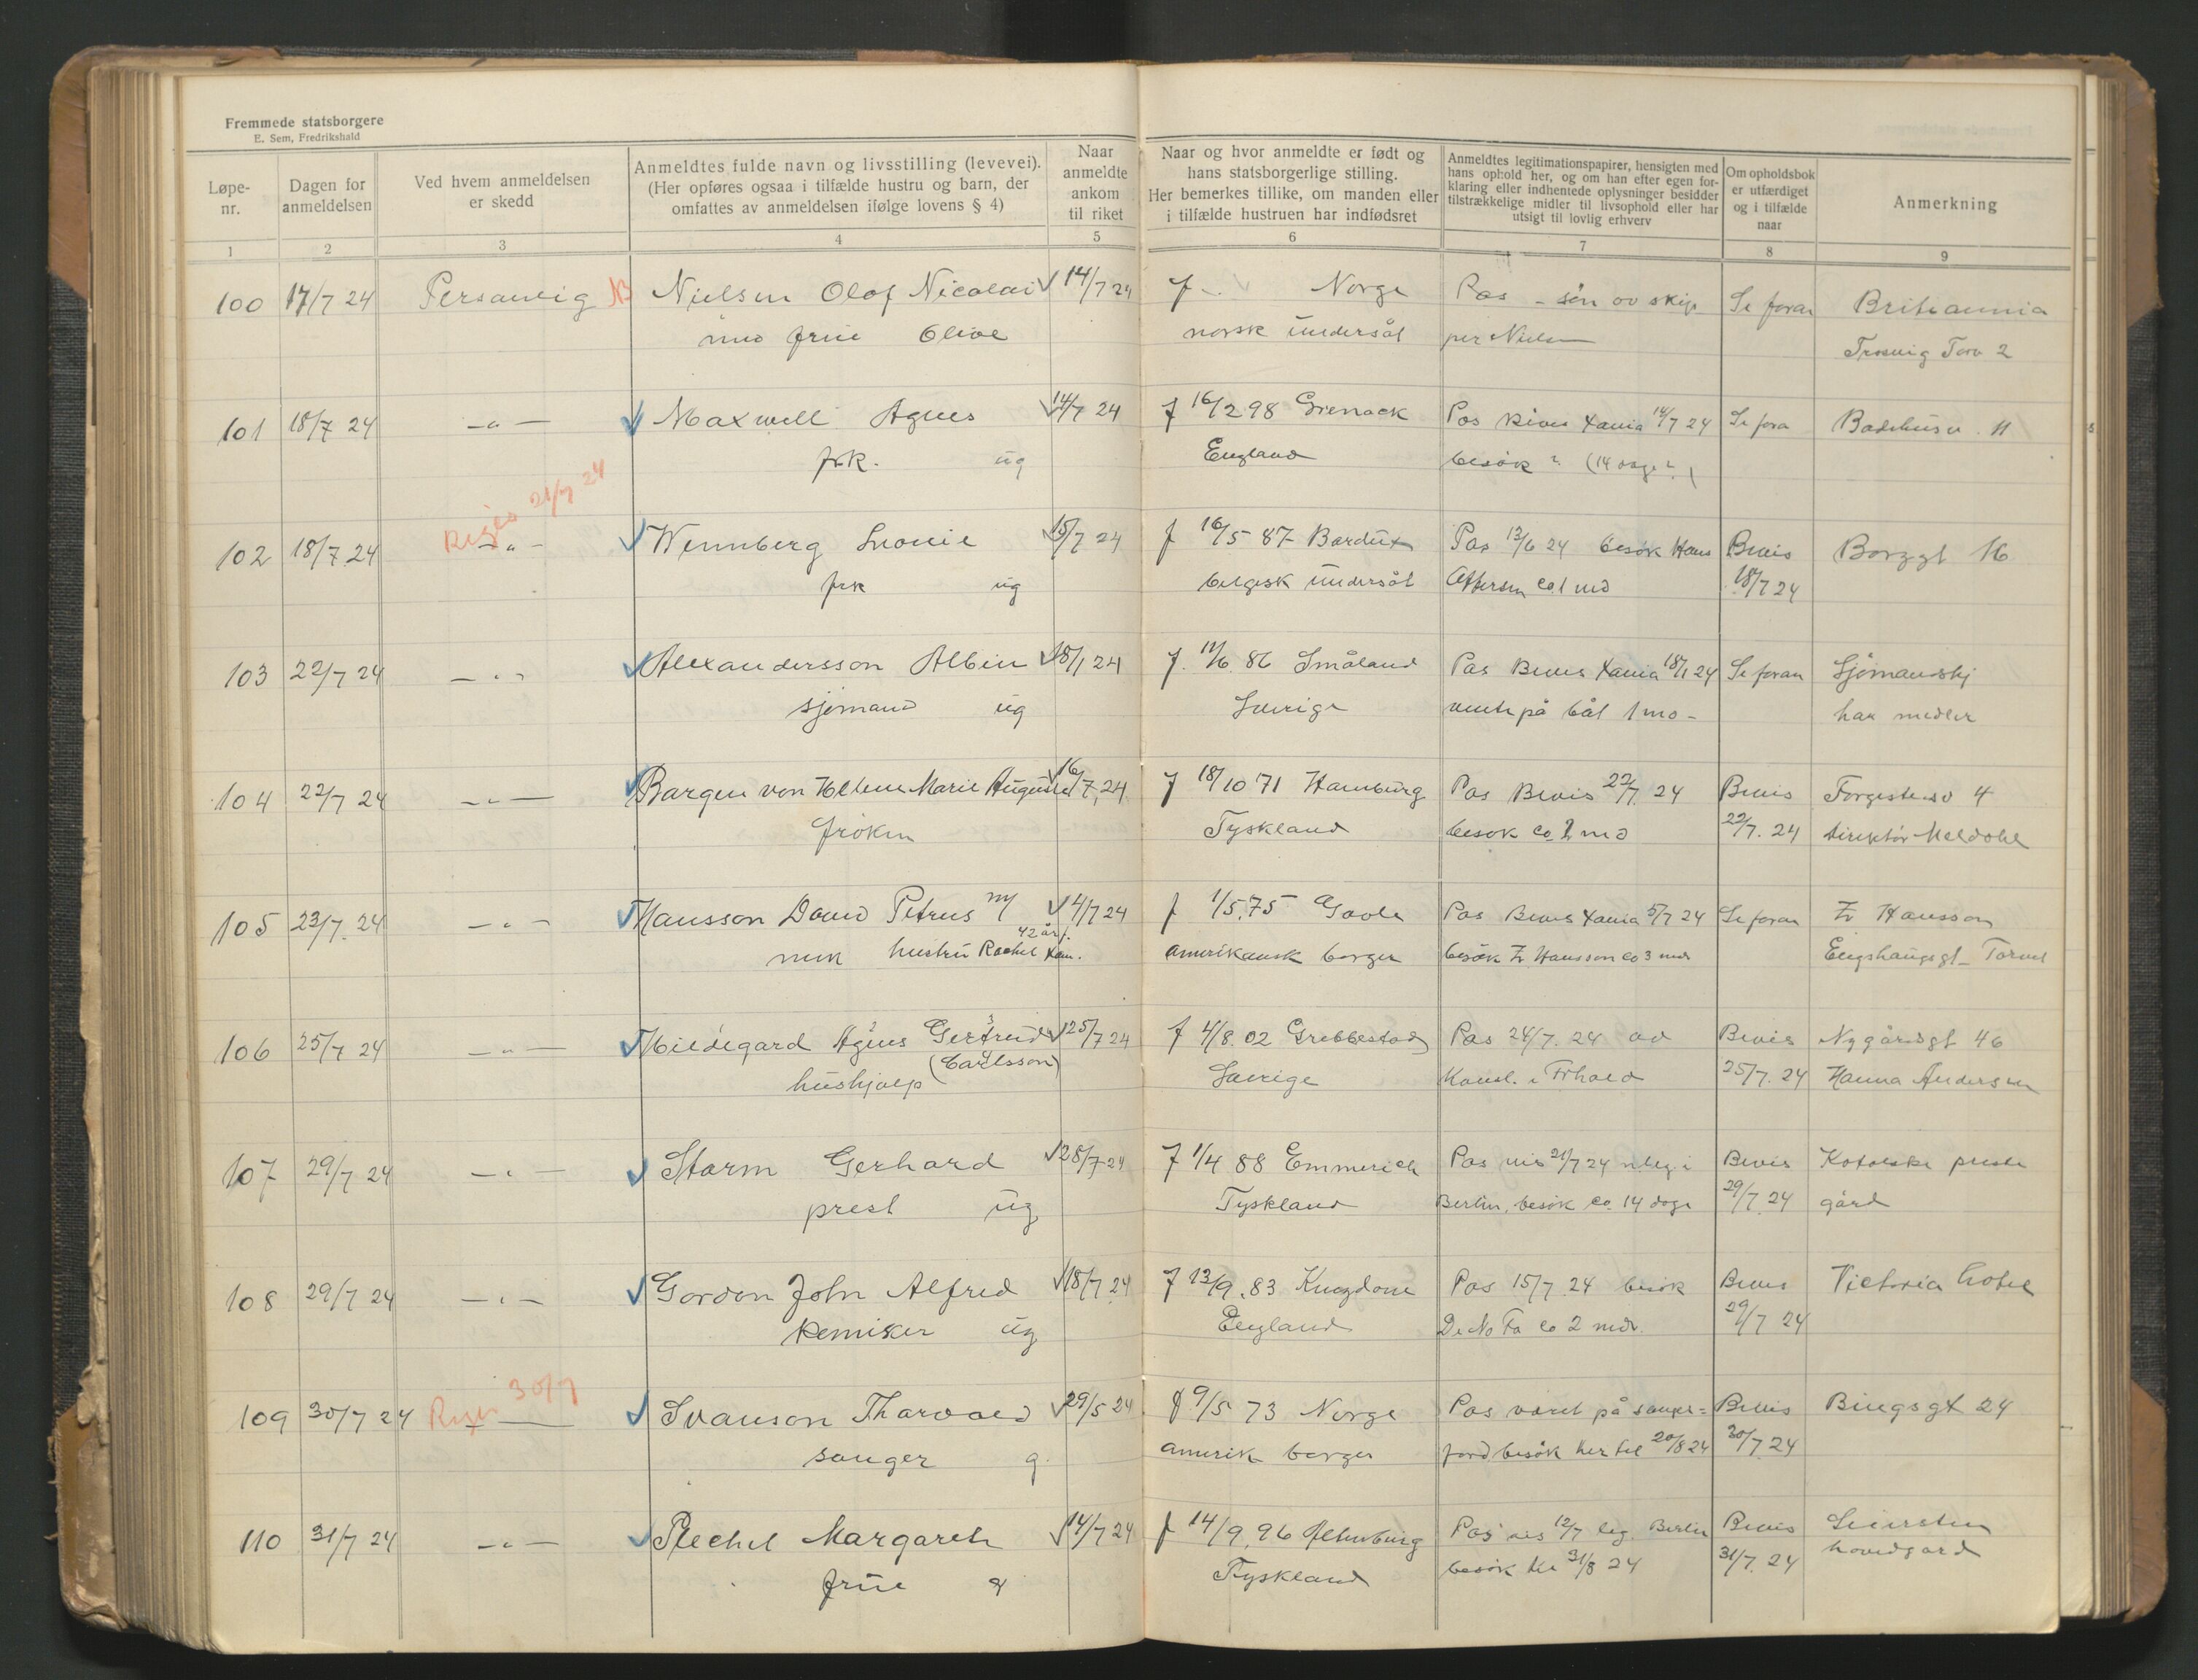 Fremmede statsborgere
E. Sem, Fredrikshald
Løpe-
nr.
Dagen for
anmeldelsen
Ved hvem anmeldelsen
er skedd
Anmeldtes fulde navn og livsstilling (levevei).
(Her opføres ogsaa i tilfælde hustru og barn, der
omfattes av anmeldelsen ifølge lovens § 4)
Naar
anmeldte
ankom
til riket
Naar og hvor anmeldte er født og
hans statsborgerlige stilling.
Her bemerkes tillike, om manden eller
i tilfælde hustruen har indfødsret
Anmeldtes legitimationspapirer, hensigten med
hans ophold her, og om han efter egen for-
klaring eller indhentede oplysninger besidder
tilstrækkelige midler til livsophold eller har
utsigt til lovlig erhverv
Om opholdsbok
er utfærdiget
og i tilfælde
naar
Anmerkning
1 2 3 4 5 6 7 8 9
100 17/7 24 Personlig Nielsen Olof Nicolai 14/7 24 f. Norge Pas - søn av skip Se foran Britannia
med frue Olive norsk undersåt per Nielsen Trosvig Torv 2
101 18/7 24 -"- Maxwell Agnes 14/7 24 f 16/2 98 Pas bevis Xania 14/7 24 Se fora Badehusg. 11
frk. ug England besøk ? (14 dage?)
Rejst 21/7 24
102 18/7 24 -"- Wennberg Leonie 15/7 24 f 16/5 87 Pas 13/6 24 besøk Hans Bevis Borggt 16
frk ug belgisk undersåt ca 1 md 18/7 24
103 22/7 24 -"- Alexandersson Albin 18/1 24 f. 86 Småland Pas Bevis Xania 18/1 24 Se foran Sjømandshj
sjømand ug Sverige vente på båt 1 mo- har midler
104 22/7 24 -"- Bargen von Helene Marie Auguste 16/7 24 f 18/10 71 Hamburg Pas Bevis 22/7 24 Bevis 4
frøken Tyskland besøk ca 2 md 22/7. 24 direktør Meldahl
105 23/7. 24 -"- Hansson David Petrus m/ 14/7 24 f 1/5. 75 Pas Bevis Xania 5/7 24 Se foran Fr Hansson
42 år f.
hustru Rachel Xan. amerikansk borger besøk Fr Hansson ca 3 mdr Engshaugsgt.
106 25/7 24 -"- Hildegard Agnes Gertrud 25/7 24 f 4/8. 02 Grebbestad Pas 24/7. 24 av Bevis Nygårdsgt 46
(Carlsson)
hushjælp Sverige Konsl. i Frhald 25/7. 24 Hanna Andersen
107 29/7 24 -"- Storm Gerhard 28/7 24 f 1/4 88 Emmerich Pas vis 21/7 24 nleg i Bevis Katolske preste
prest ug Tyskland Berlin, besøk ca. 14 dage 29/7. 24 gård
108 29/7 24 -"- Gordon John Alfred 18/7 24 f 13/9. 83 Pas 15/7 24 besøk Bevis Victoria hotel
kemiker ug England De No Fa ca 2 mdr. 29/7 24
30/7
109 30/7 24 Svanson Tharvald 29/5 24 f 9/5 73 Norge Pas været på sanger= Bevis Bingsgt 24
sanger g. amerik borger færd besøk her til 20/8 24 30/7 24
110 31/7 24 -"- Plechel Margarete 14/7 24 f 14/9. 96 Altenburg Pas vis 12/7 leg. Berlin Bevis
frue g Tyskland besøk til 31/8 24 31/7. 24 hovedgård